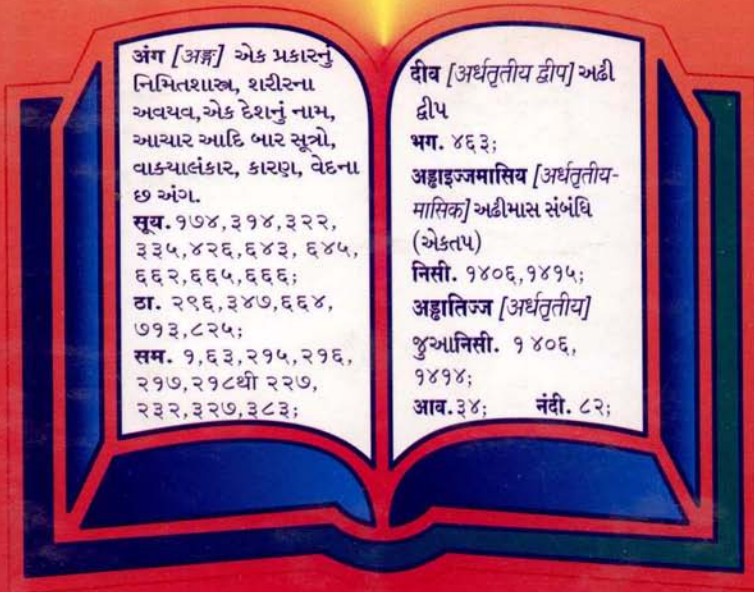 अंग [अङ्ग] એક પ્રકારનું
નિમિતશાસ્ત્ર, શરીરના
અવયવ,એક દેશનું નામ,
આચાર આદિ બાર સૂત્રો,
વાક્યાલંકાર, કારણ, વેદના
છ અંગ.
सूय.૧૭૪,૩૧૪,૩૨૨,
૩૩૫,૪૨૬,૬૪૩, ૬૪૫,
૬૬૨,૬૬૫,૬૬૬;
ठा. ૨૯૬,૩૪૭,૬૬૪,
૭૧૩,૮૨૫;
सम. ૧,૬૩,૨૧૫,૨૧૬,
૨૧૭,૨૧૮થી ૨૨૭,
૨૩૨,૩૨૭,૩૮૩;
दीव [अर्धतृतीय द्वीप] અઢી
દ્વીપ
भग. ૪૬૩;
अड्ढाइज्जमासिय [अर्धतृतीय-
मासिक] અઢીમાસ સંબંધિ
(એકતપ)
निसी. ૧૪૦૬,૧૪૧૫;
अड्ढातिज्ज [अर्धतृतीय]
જુઆनिसी. ૧ ૪૦૬,
૧૪૧૪;
आव.૩૪; नंदी. ૮૨;